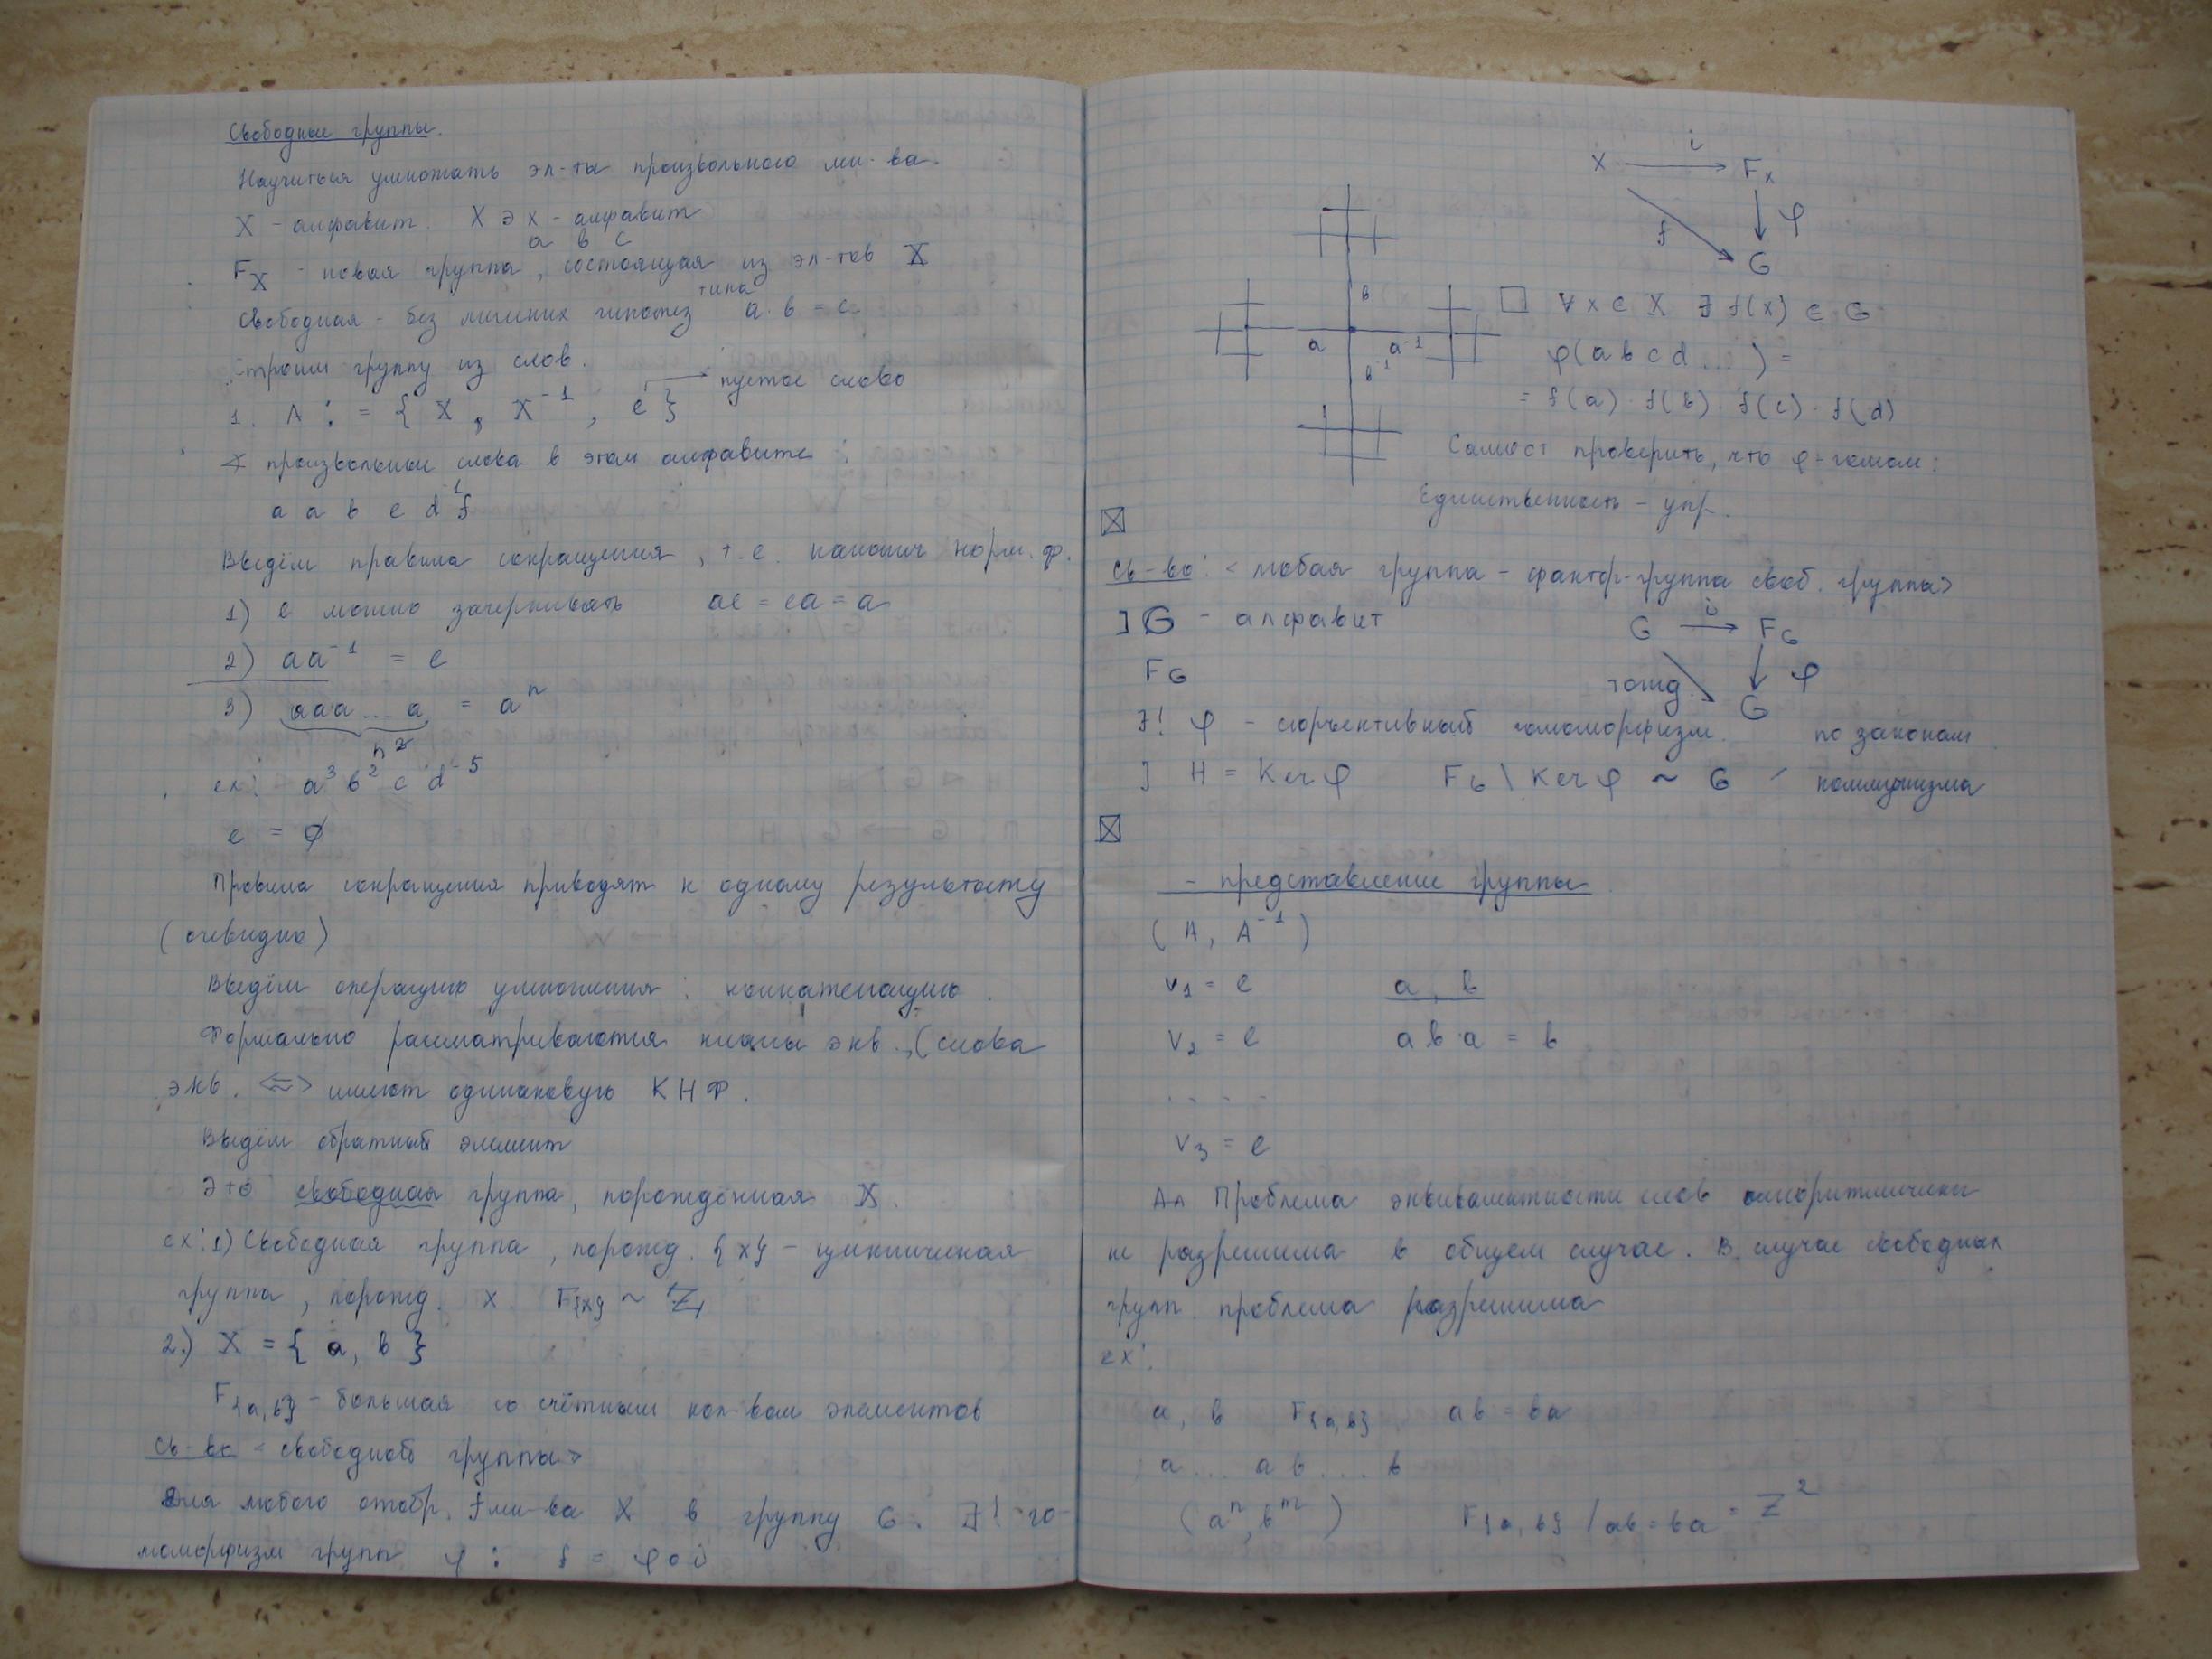 Свободные группы.
Научиться умножать эл-ты произвольного мн-ва.
X - алфавит. X ∋ x - алфавит
a b c
F_X - новая группа, состоящая из эл-тов X
Свободная - без лишних гипотез типа a·b = c
Строим группу из слов.
1. A := { X, X^{-1}, e } → пустое слово
∢ произвольные слова в этом алфавите:
a a b e d^{1} f
Введём правила сокращения, т.е. канонич норм. ф.
1) e можно зачеркивать ae = ea = a
2) aa^{-1} = e
3) aaa ... a = a^n
n
ex: a^3 b^2 c d^{-5}
e = ∅
Правила сокращения приводят к одному результату
(очевидно)
Введём операцию умножения: конкатенацию.
Формально рассматриваются классы экв., (слова
экв. <=> имеют одинаковую КНФ.
Введём обратный элемент
Это свободная группа, порождённая X.
ex: 1) Свободная группа, порожд. {x} - циклическая
группа, порожд. x. F_{x} ~ Z
2.) X = { a, b }
F_{a,b} - большая со счётным кол-вом элементов
Св-во <свободной группы>
Для любого отобр. f мн-ва X в группу G. ∃! го-
моморфизм групп φ: f = φ∘i
X i F_X
f φ
G
b
a a^{-1}
b^{-1}
□ ∀ x ∈ X ∃ f(x) ∈ G
φ(a b c d ...) =
= f(a)·f(b)·f(c)·f(d)
Самост проверить, что φ-гомом:
Единственность - упр.
⊠
Св-во: <любая группа - фактор-группа своб. группы>
] G - алфавит
G i F_G
F_G
тожд. φ
G
∃! φ - сюръективный гомоморфизм. по законам
] H = Ker φ F_G \ Ker φ ~ G коммунизма
⊠
- представление группы.
(A, A^{-1})
v_1 = e a, b
v_2 = e a b·a = b
. . . .
v_3 = e
Проблема эквивалентности слов алгоритмически
не разрешима в общем случае. В случае свободных
групп. проблема разрешима
ex:
a, b F_{a,b} ab = ba
a ... a b ... b
(a^n, b^m) F_{a,b} / ab = ba = Z^2